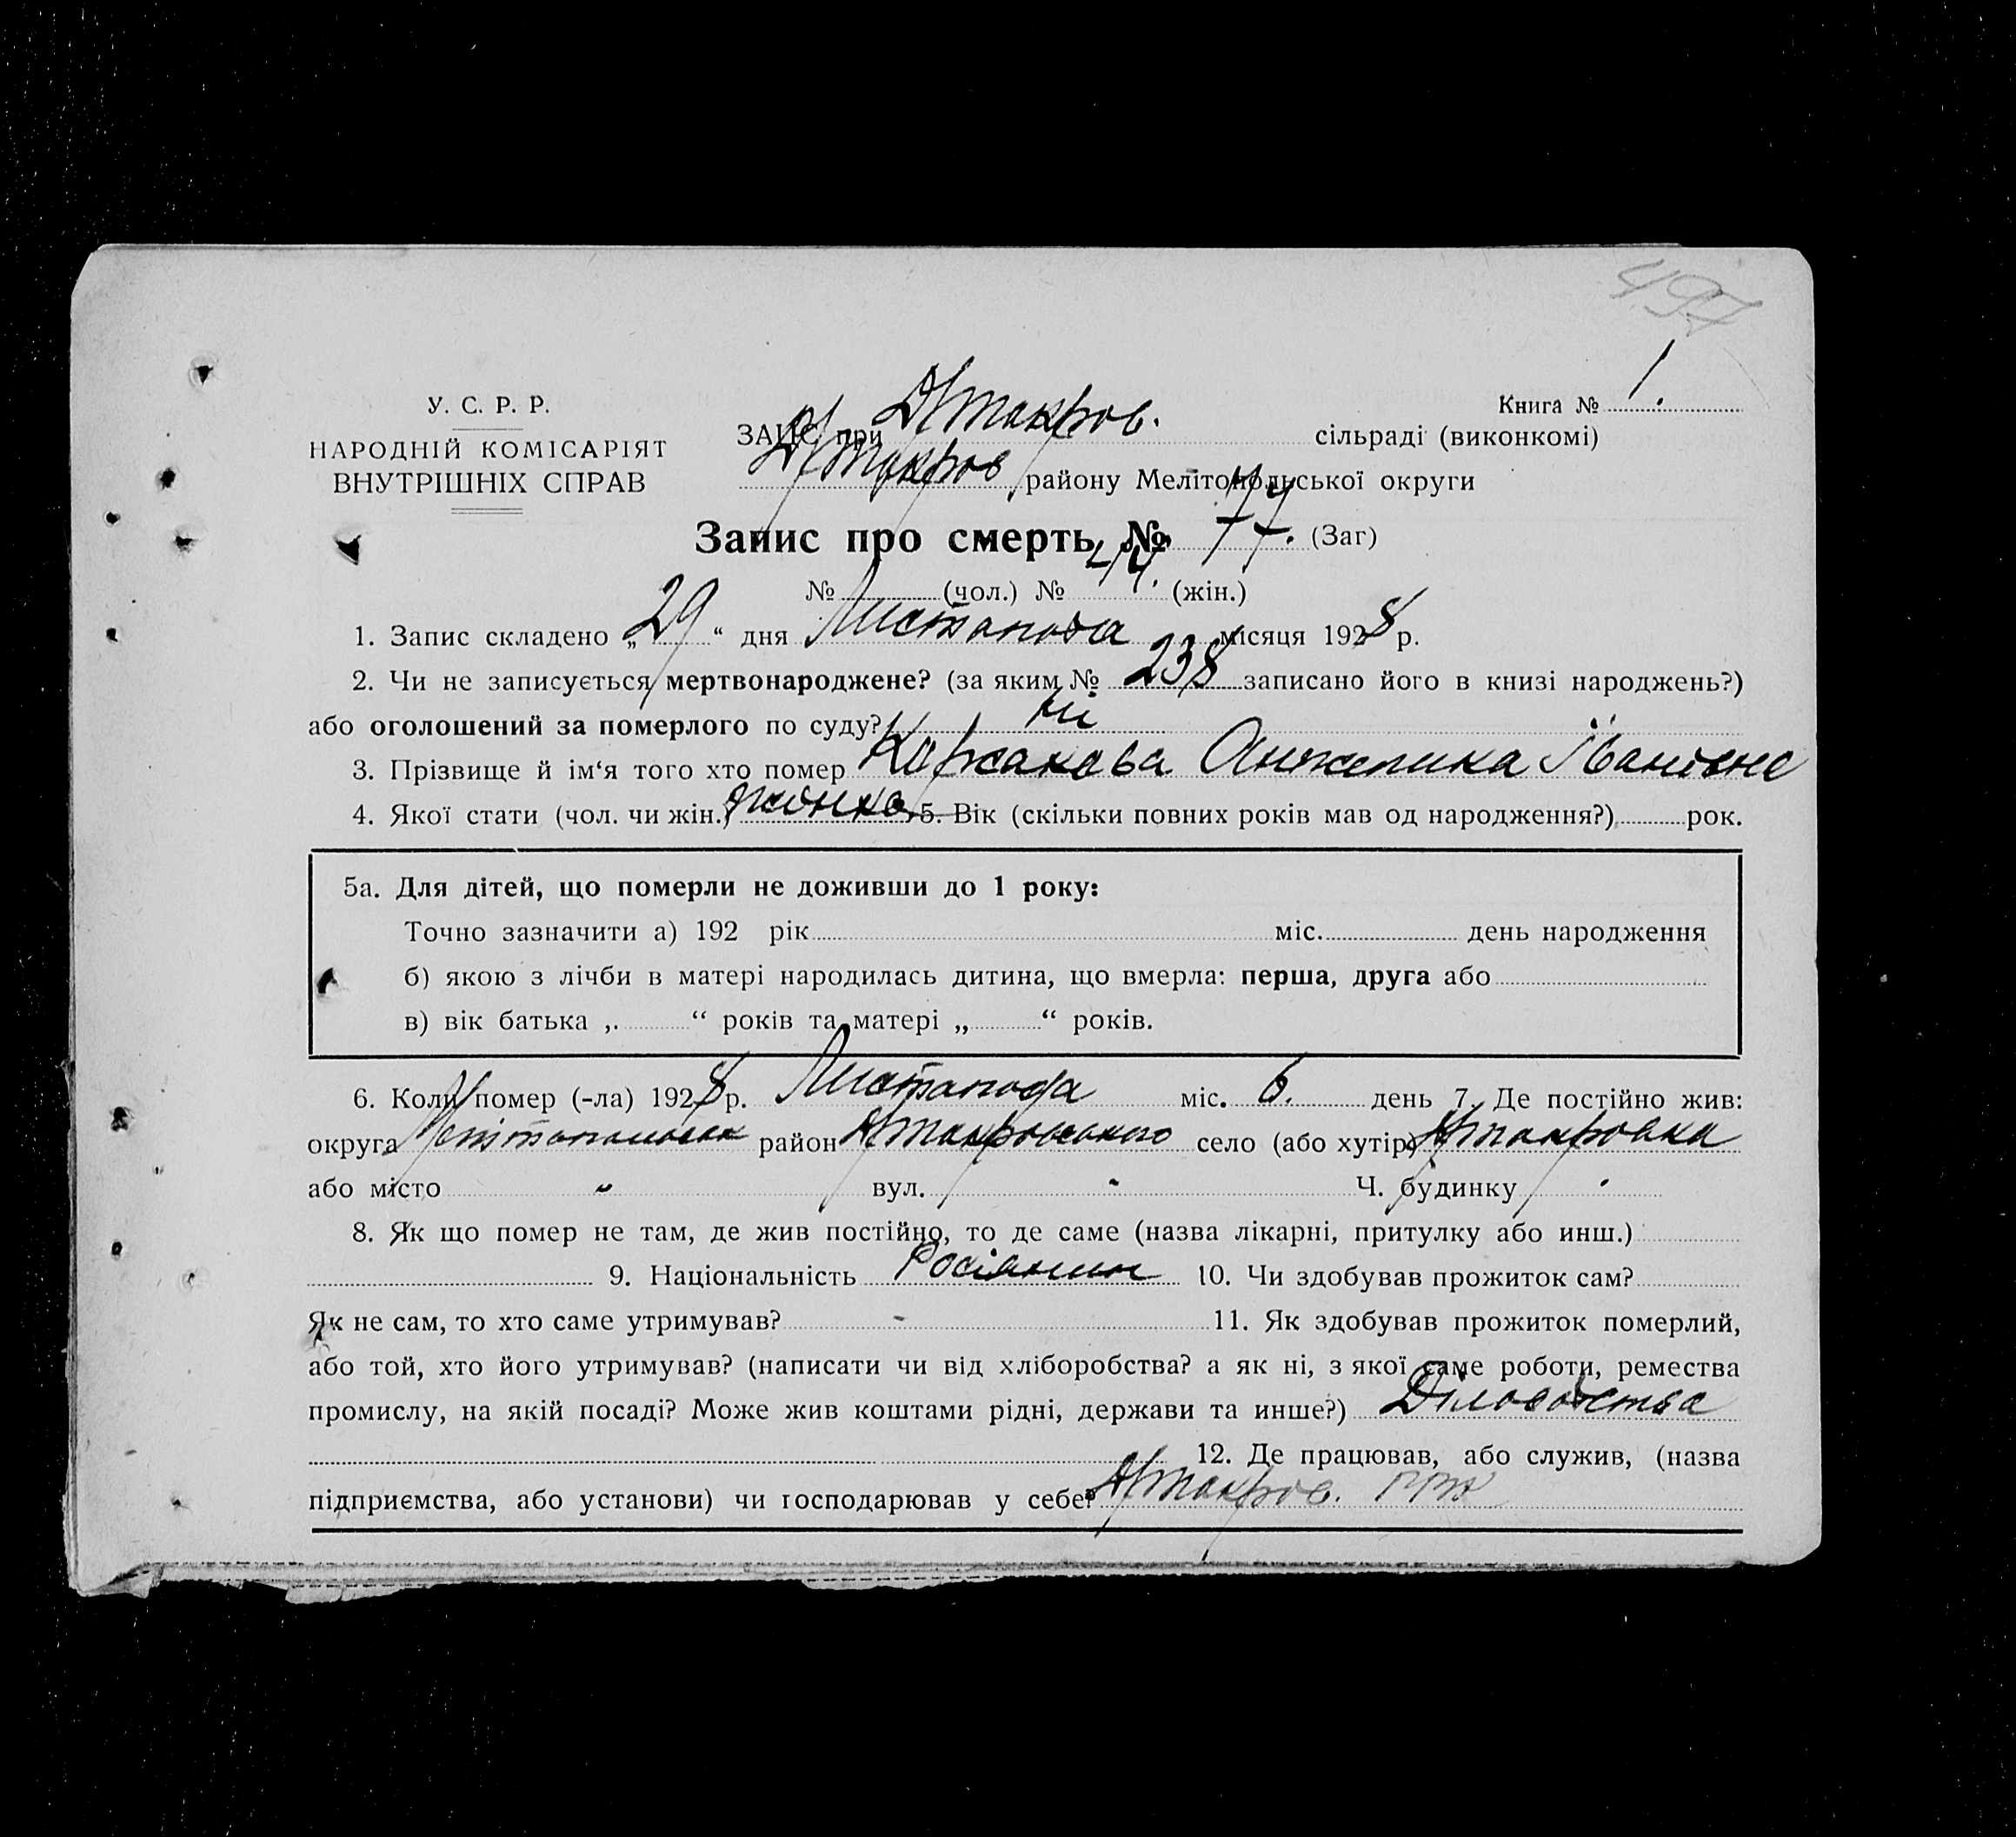 497
У. С. Р. Р.
НАРОДНІЙ КОМІСАРІЯТ
ВНУТРІШНІХ СПРАВ
Книга № 1.
ЗАЦС при Якімовськ. сільраді (виконкомі)
району Мелітопольської округи
Запис про смерть № 77. (Заг)
№ (чол.) № 44. (жін.)
1. Запис складено „ 29 “ дня Листопада місяця 1928 р.
2. Чи не записується мертвонароджене? (за яким № 238 записано його в книзі народжень?)
або оголошений за померлого по суду? ні
3. Прізвище й ім‘я того хто помер Корсакова Анжелика Іванівна
4. Якої стати (чол. чи жін.) жінка 5. Вік (скільки повних років мав од народження?) рок.
5а. Для дітей, що померли не доживши до 1 року:
Точно зазначити а) 192 рік міс. день народження
б) якою з лічби в матері народилась дитина, що вмерла: перша, друга або
в) вік батька „ “ років та матері „ “ років.
6. Коли помер (-ла) 1928 р. Листопада міс. 6. день 7. Де постійно жив:
округа район село (або хутір)
або місто " вул. " Ч. будинку "
8. Як що помер не там, де жив постійно, то де саме (назва лікарні, притулку або инш.)
9. Національність Росіянин 10. Чи здобував прожиток сам?
Як не сам, то хто саме утримував? - 11. Як здобував прожиток померлий,
або той, хто його утримував? (написати чи від хліборобства? а як ні, з якої саме роботи, ремества
промислу, на якій посаді? Може жив коштами рідні, держави та инше?) Діловодства
12. Де працював, або служив, (назва
підприємства, або установи) чи господарював у себе?